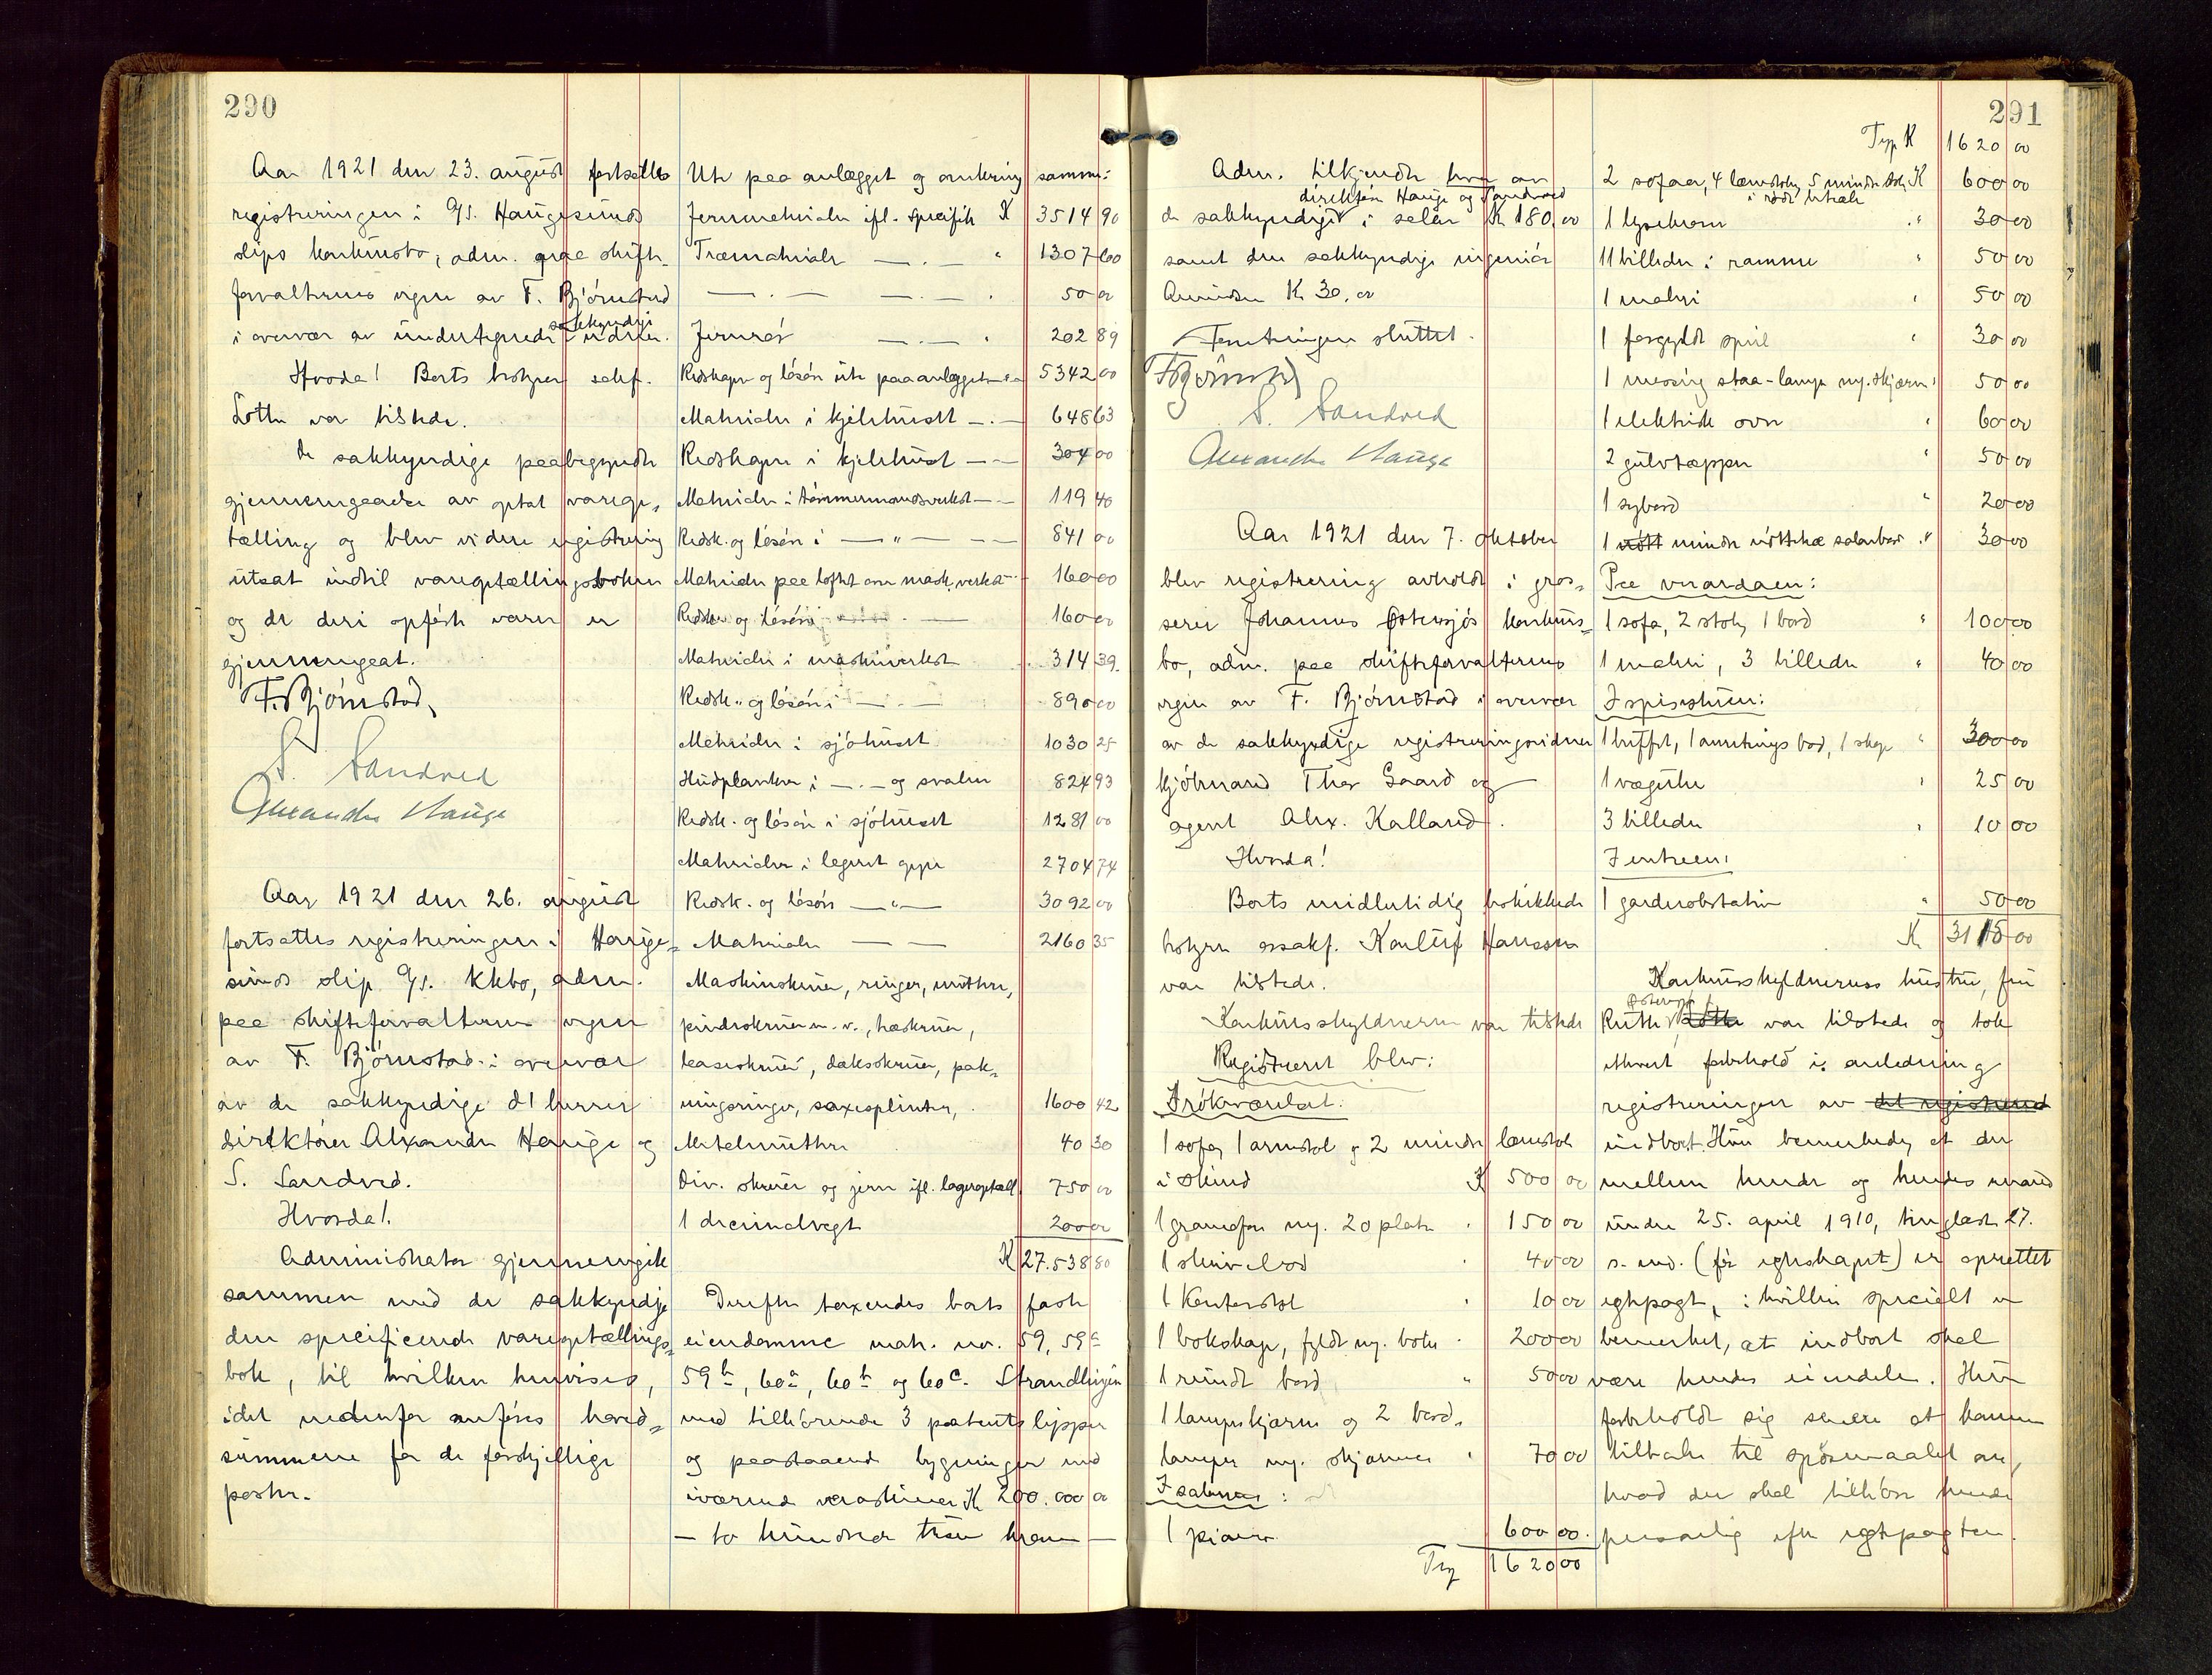 290
Aar 1921 den 23. august fortsattes
registreringen i A/S. Haugesunds
slips konkursbo, adm. paa skifte-
forvalterens vegne av F. Bjørnstad
i overvær av undertegnede sakkyndige vidner.
Hvorda! Boets bestyrer sakf.
Lothe var tilstede.
De sakkyndige paabegyndte
gjennemgaaelse av optat vareop-
tælling og blev videre registrering
utsat indtil vareoptællingsboken
og de deri opførte varer er
gjennemgaat.
F. Bjørnstad,
S. Sandved
Alexander Hauge
Aar 1921 den 26. august
fortsattes registreringen i Hauge-
sunds slip A/S. kkbo, adm.
paa skifteforvalterens vegne
av F. Bjørnstad i overvær
av de sakkyndige d'herrer
direktører Alexander Hauge og
S. Sandved.
Hvorda!
Administrator gjennemgik
sammen med de sakkyndige
den specificerte vareoptællings-
bok, til hvilken henvises,
idet nedenfor anføres hoved-
summene for de forskjellige
poster.
Ute paa anlægget og omkring samme:
Jernmaterialer ifl. specifik K 3514 90
Træmaterialer — . — " 1307 60
— . — — . — . 50 00
Jernrør — . — " 202 89
Redskaper og løsøre ute paa anlægget — " — 5342 00
Materialer i kjelehuset — . — 648 63
Redskaper i kjelehuset — — 304 00
Materialer i tømmermandsverkst — — 119 40
Redsk. og løsøre i — " — — — 841 00
Materialer paa loftet over mask. verkst — 160 00
Redsk. og løsøre — . — 160 00
Materialer i maskinverkst 314 39
Redsk. og løsøre i — . — 890 00
Materialer i sjøhuset 1030 25
Hudplanker i — . — og svalen 824 93
Redsk. og løsøre i sjøhuset 1281 00
Materialer i lageret oppe 2704 74
Redsk. og løsøre — " — 3092 00
Materialer — — 2160 35
Maskinskruer, ringer, muttere,
pindeskruer m. v., hækskruer,
lasceskruer, dæksskruer, pak-
ningsringer, saxesplinter, 1600 42
Metalmuttere 40 30
Div. skruer og jern ifl. lageroptæll. 750 00
1 decimalvegt 200 00
K 27.538 80
Derefter taxertes boets faste
eiendomme matr. nr. 59, 59a
59b, 60a, 60b og 60c. Strandlinjen
med tilhørende 3 patentslipper
og paastaaende bygninger med
iværende maskiner K 200.000 00
— to hundrede tusen kroner —
291
Adm. tilkjendte hver av
direktørene Hauge og Sandved
de sakkyndige i salær K 180,00
samt den sakkyndige ingeniør
Amundsen K 30,00
Forretningen sluttet.
F Bjørnstad
S. Sandved
Alexander Hauge
Aar 1921 den 7. oktober
blev registrering avholdt i gros-
serer Johannes Østensjøs konkurs-
bo, adm. paa skifteforvalterens
vegne av F. Bjørnstad i overvær
av de sakkyndige registreringsvidner
kjøbmand Thor Gaard og
agent Alex. Kalland.
Hvorda!
Boets midlertidig beskikkede
bestyrer o.r.sakf. Konluf Hansson
var tilstede.
Konkursskyldneren var tilstede
Registrert blev:
I røkværelset:
1 sofa, 1 armstol og 2 mindre lænestole
i skind K 500 00
1 gramofon m. 20 plater " 150 00
1 skrivebord " 40 00
1 kontorstol " 10 00
1 bokskap, fyldt m. bøker " 200 00
1 rundt bord " 50 00
1 lampeskjærm og 2 bord-
lamper m. skjærmer " 70 00
I salonen:
1 piano 600 00
Trp 1620 00
Trp K 1620 00
2 sofaer, 4 lænestoler, 5 mindre stole K 600 00
i rødt betræk
1 lysekrone " 30 00
11 billeder i ramme " 50 00
1 maleri " 50 00
1 forgyldt speil " 30 00
1 messing staa-lampe m. skjærm " 50 00
1 elektrisk ovn " 60 00
2 gulvtæpper " 50 00
1 sybord " 20 00
1 nøtt mindre nøttetræ salonbord " 30 00
Paa verandaen:
1 sofa, 2 stole, 1 bord " 100 00
1 maleri, 3 billeder " 40 00
I spisestuen:
1 buffet, 1 anretningsbord, 1 skap " 300 00
1 vægur " 25 00
3 billeder " 10 00
I entreen:
1 garderobestativ " 50 00
K 3115 00
Konkursskyldnerens hustru, fru
Ruth Østensjø var tilstede og tok
ethvert forbehold i anledning
registreringen av det registrerte
indboet. Hun bemerkede, at der
mellem hende og hendes mand
under 25. april 1910, tinglæst 27.
s. md. (før egteskapet) er oprettet
egtepagt, i hvilken specielt er
bemerket, at indboet skal
være hendes eiendele. Hun
forbeholdt sig senere at komme
tilbake til spørsmaalet om,
hvad der skal tilhøre hende
personlig efter egtepagten.